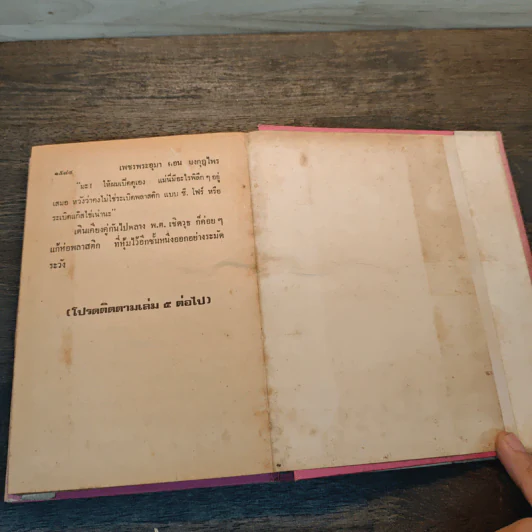 เพชรพระอุมา ตอน มงกุฎไพร
๑๕๘๔
"นะ! ให้ผมเปิดดูเอง แม่นี่มีอะไรพิลึก ๆ อยู่
เสมอ หวังว่าคงไม่ใช่ระเบิดพลาสติก แบบ ซี. โฟร์ หรือ
ระเบิดแก๊สไข่เน่านะ"
เดินเคียงคู่กันไปพลาง พ.ต. เชิดวุธ ก็ค่อย ๆ
แก้ห่อพลาสติก ที่หุ้มไว้อีกชั้นหนึ่งออกอย่างระมัด
ระวัง
(โปรดติดตามเล่ม ๕ ต่อไป)